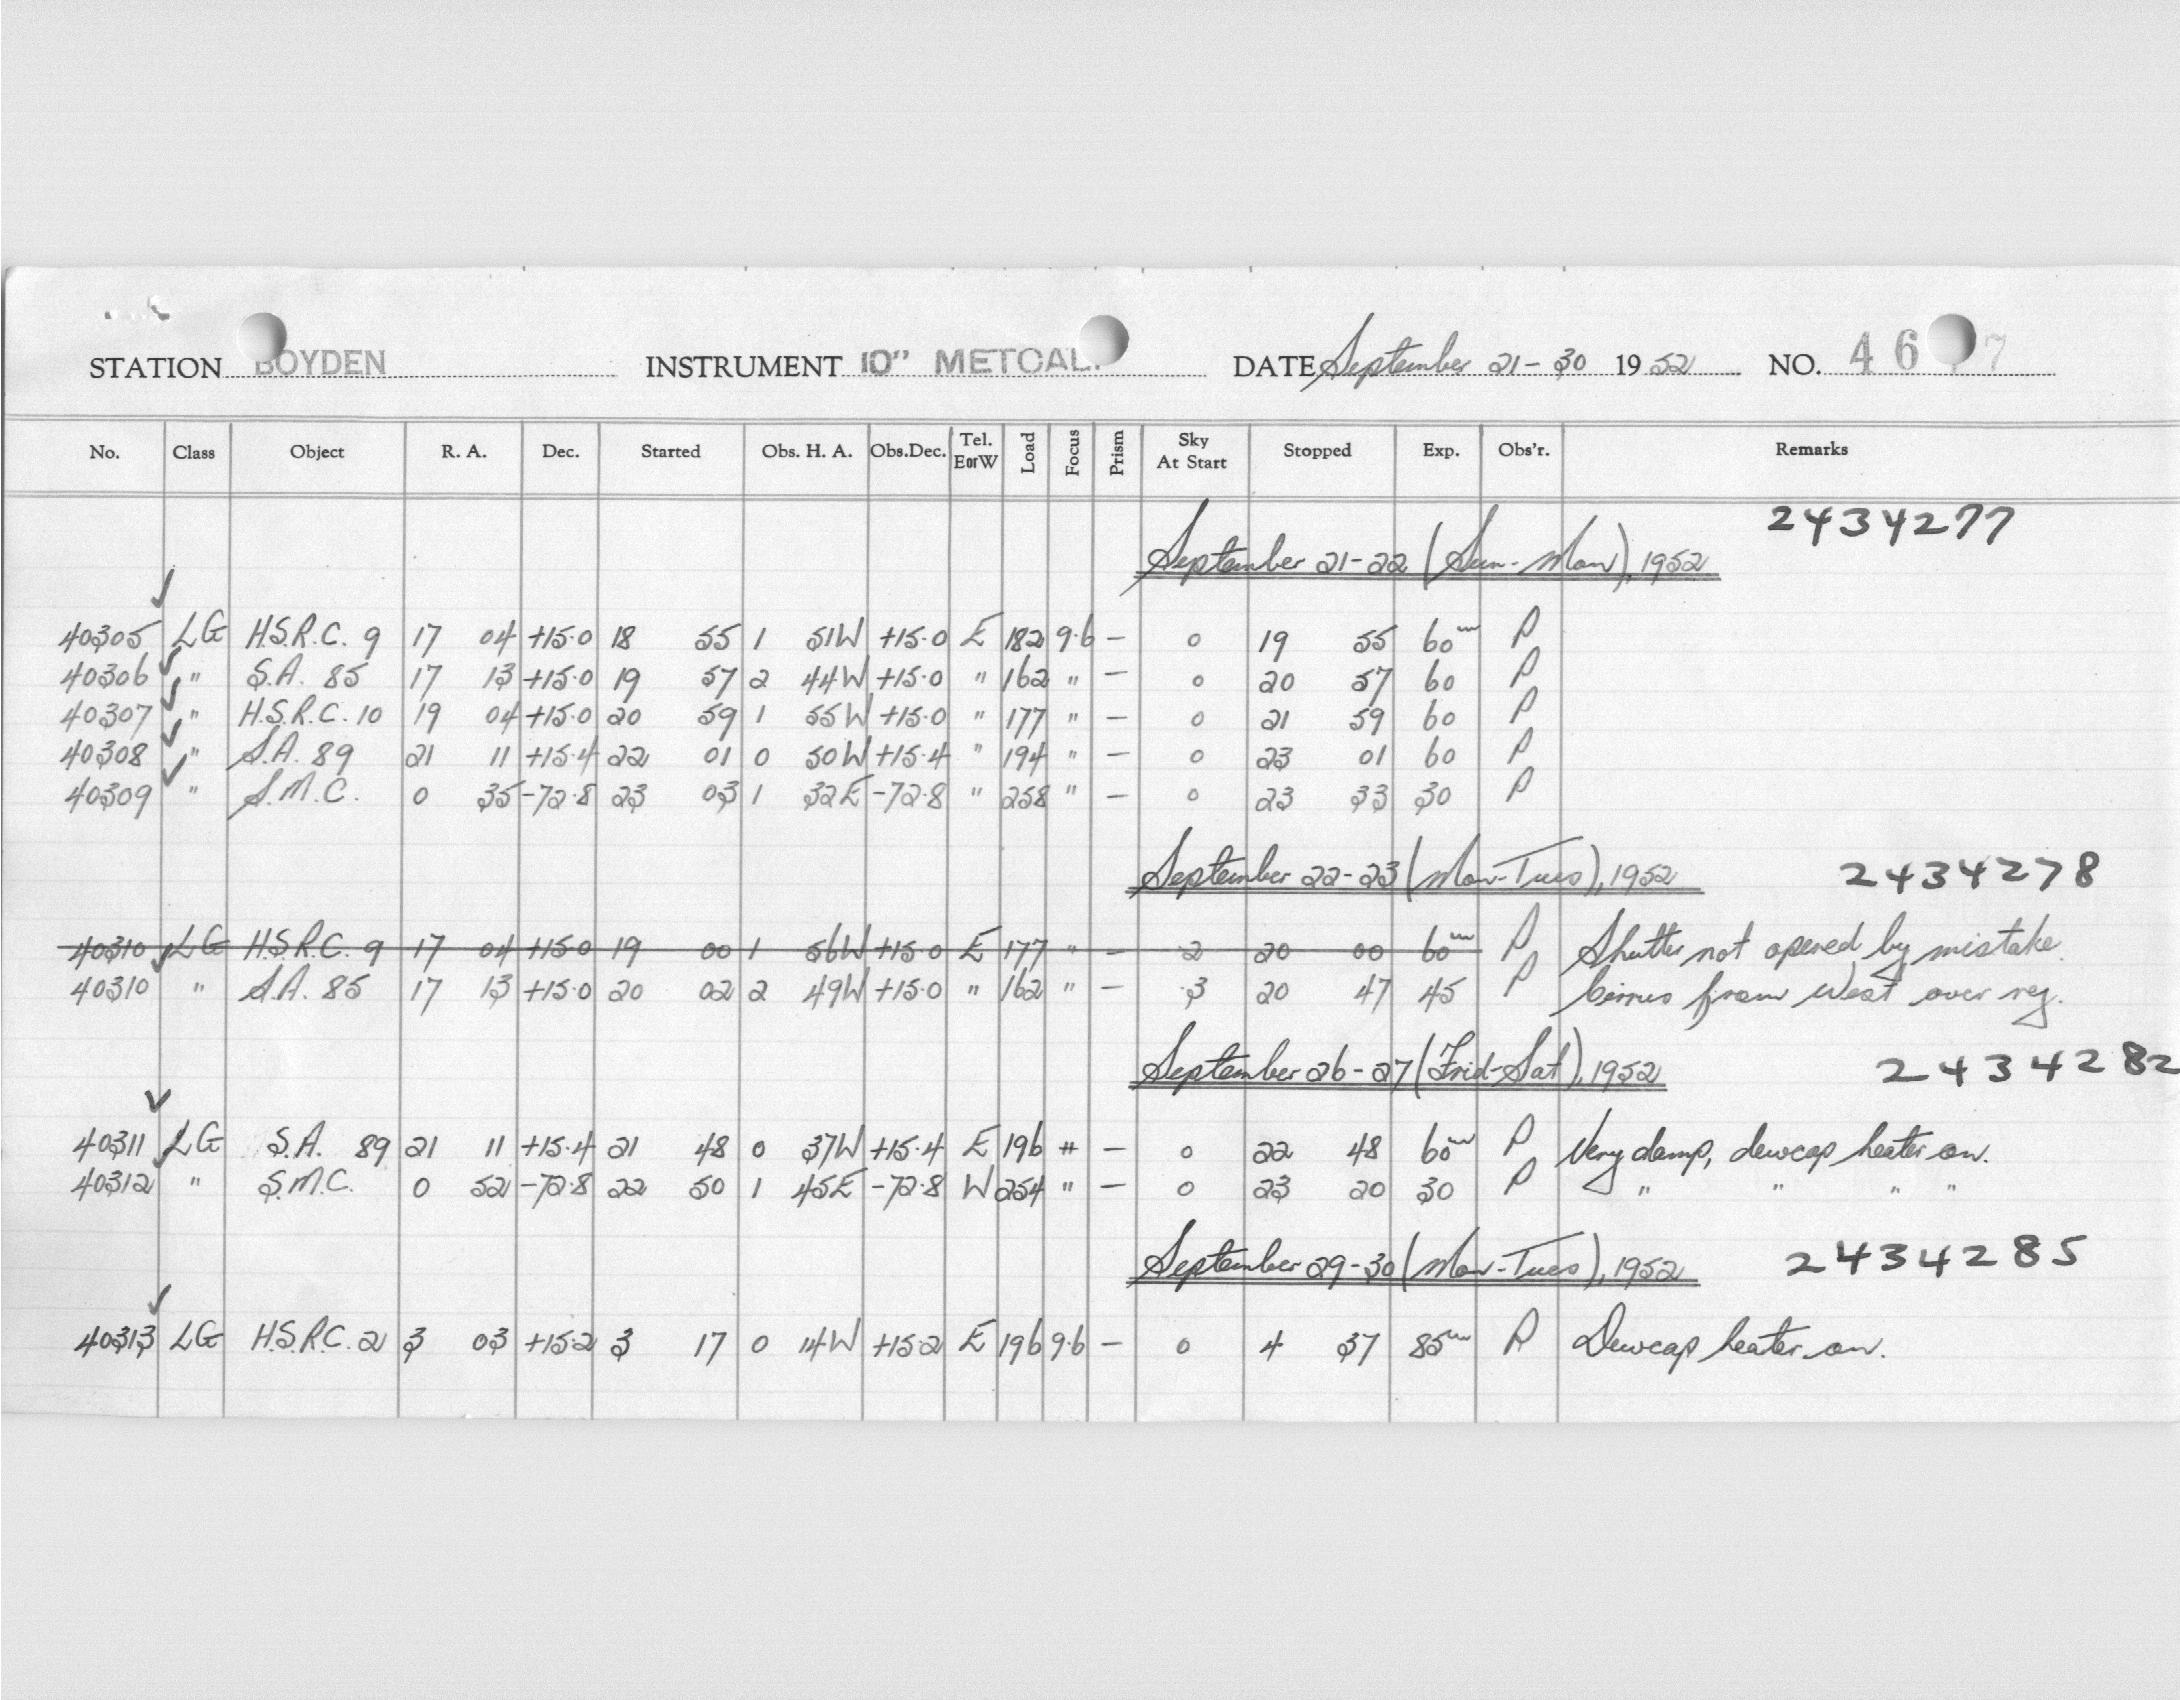 STATION BOYDEN INSTRUMENT 10" METCAL DATE September 21-30 1952 NO. 46 7
No. Class Object R. A. Dec. Started Obs. H. A. Obs.Dec. Tel. EorW Load Focus Prism Sky At Start Stopped Exp. Obs'r. Remarks
2434277
September 21-22 (Sun-Mon), 1952
40305 LG H.S.R.C. 9 17 04 +15.0 18 55 1 51W +15.0 E 182 9.6 — 0 19 55 60m P
40306 " S.A. 85 17 13 +15.0 19 57 2 44W +15.0 " 162 " — 0 20 57 60 P
40307 " H.S.R.C. 10 19 04 +15.0 20 59 1 55W +15.0 " 177 " — 0 21 59 60 P
40308 " S.A. 89 21 11 +15.4 22 01 0 50W +15.4 " 194 " — 0 23 01 60 P
40309 " S.M.C. 0 35 -72.8 23 03 1 32E -72.8 " 258 " — 0 23 33 30 P
September 22-23 (Mon-Tues), 1952 2434278
40310 LG H.S.R.C. 9 17 04 +15.0 19 00 1 56W +15.0 E 177 " — 2 20 00 60m P Shutter not opened by mistake.
40310 " S.A. 85 17 13 +15.0 20 02 2 49W +15.0 " 162 " — 3 20 47 45 P Cirrus from West over reg.
September 26-27 (Frid-Sat), 1952 2434282
40311 LG S.A. 89 21 11 +15.4 21 48 0 37W +15.4 E 196 " — 0 22 48 60m P Very damp, dewcap heater on.
40312 " S.M.C. 0 52 -72.8 22 50 1 45E -72.8 W 254 " — 0 23 20 30 P " " " "
September 29-30 (Mon-Tues), 1952 2434285
40313 LG H.S.R.C. 2 3 03 +15.2 3 17 0 14W +15.2 E 196 9.6 — 0 4 37 85m P Dewcap heater on.